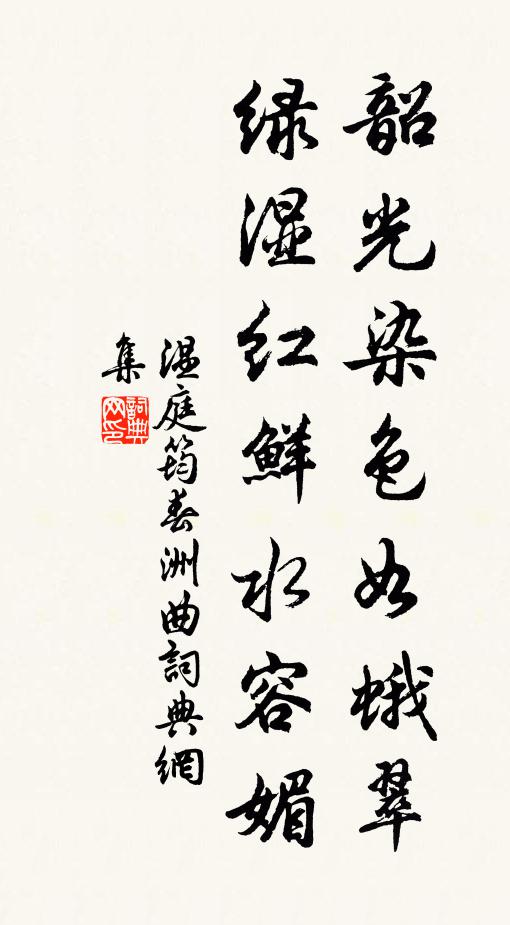 韶光染色如蛾翠
绿湿红鲜水容媚
温庭筠春洲曲詞典網
集
詞典网印